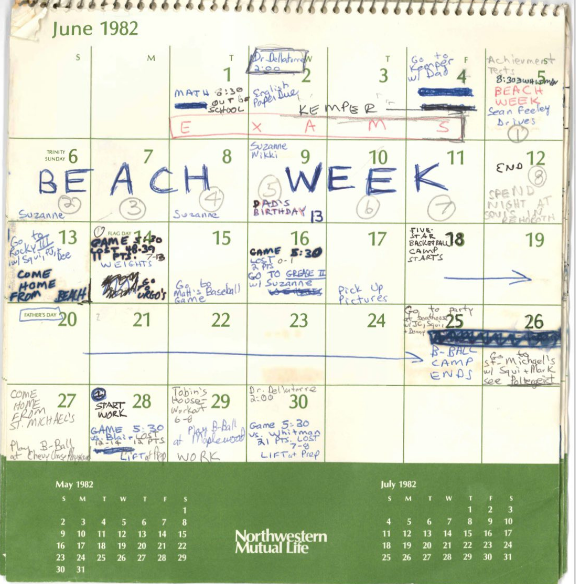 June 1982
S M T W T F S
1
MATH 8:30
OUT OF
SCHOOL
2
Dr. Dellatorre
2:00
English
Paper Due
3
4
Go to
Kemper
w/ Dad
5
Achievement
Tests
8:30
BEACH
WEEK
Sean Feeley
Drives
1
KEMPER
EXAMS
TRINITY
SUNDAY
6
7
8
9
Suzanne
Nikki
10
11
12
END
8
BEACH WEEK
2
3
4
5
6
7
Suzanne
Suzanne
DAD'S
BIRTHDAY 13
SPEND
NIGHT AT
13
Go to
Rocky III
w/ Squi, PJ,
COME
HOME
FROM BEACH
FLAG DAY
14
GAME
LOST 48-39
11 PTS.
WEIGHTS
GO
15
Go to
Matt's Baseball
Game
16
GAME 5:30
LOST 0-1
2 PTS.
GO TO GREASE II
w/ Suzanne
17
Pick Up
Pictures
18
FIVE-
STAR
BASKETBALL
CAMP
STARTS
19
FATHER'S DAY
20
21
22
23
24
25
Go to party
B-BALL
CAMP
ENDS
26
Go to
St. Michael's
w/ Squi + Mark
see Poltergeist
27
COME
HOME
FROM
ST. MICHAELS
Play B-Ball
at
28
START
WORK
GAME 5:30
vs. Blair
LIFT at Prep
29
Tobin's
House-
Workout
6-8
Play B-Ball
at Maplewood
WORK
30
Dr. Dellatorre
2:00
GAME 5:30
vs. Whitman
21 PTS. LOST
7-8
LIFT at Prep
May 1982
S M T W T F S
1
2 3 4 5 6 7 8
9 10 11 12 13 14 15
16 17 18 19 20 21 22
23 24 25 26 27 28 29
30 31
Northwestern
Mutual Life
July 1982
S M T W T F S
1 2 3
4 5 6 7 8 9 10
11 12 13 14 15 16 17
18 19 20 21 22 23 24
25 26 27 28 29 30 31